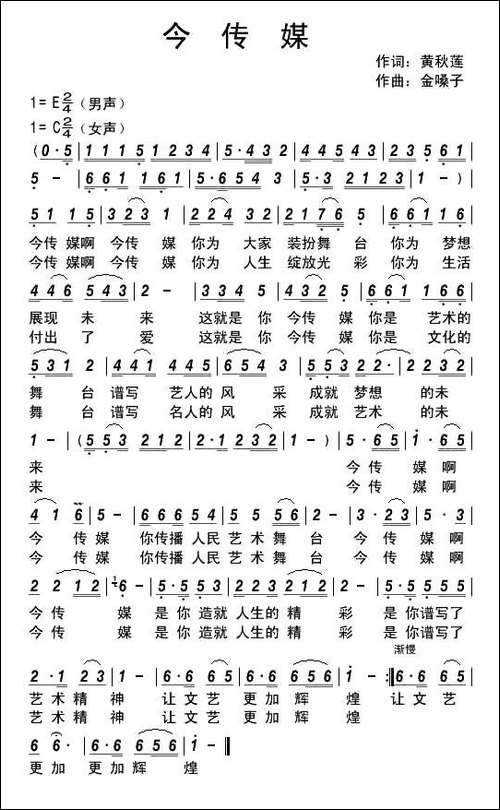 今传媒
作词：黄秋莲
作曲：金嗓子
1=E2/4（男声）
1=C2/4（女声）
(0·5|1115 1234|5·432|445443|235651|
5 -|661 161|5·654 3|5·3 2123|1 -)|
51 15|3231|224 32|2176 5|661 16|
今传 媒啊 今传 媒 你为 大家 装扮舞 台 你为 梦想
今传 媒啊 今传 媒 你为 人生 绽放光 彩 你为 生活
446 543|2 -|334 51|432 52|661 161|
展现 未 来 这就是 你 今传 媒 你是 艺术的
付出 了 爱 这就是 你 今传 媒 你是 文化的
531 2|441 445|654 3|553 22|2232|
舞 台 谱写 艺人的 风 采 成就 梦想 的未
舞 台 谱写 名人的 风 采 成就 艺术 的未
1 -|(553 212|2·1 232|1 -)|5·65|1·65|
来 今传 媒啊
来 今传 媒啊
41 6|5 -|666 54|5555|2 -|3·23|5·3|
今 传 媒 你传播 人民 艺术 舞 台 今传 媒啊
今 传 媒 你传播 人民 艺术 舞 台 今传 媒啊
2 212|6·-|5·5 53|5·5 21|2 -|5·555|
今传 媒 是你 造就 人生的 精 彩 是你谱写了
今传 媒 是你 造就 人生的 精 彩 是你谱写了
渐慢
2·1 23|1 -|6·6 65|6·6 656|1 -:|6·6 65|
艺术 精 神 让文艺 更加辉 煌 让文艺
艺术 精 神 让文艺 更加辉 煌
6 6·|6·6 656|1 -‖
更加 更加辉 煌